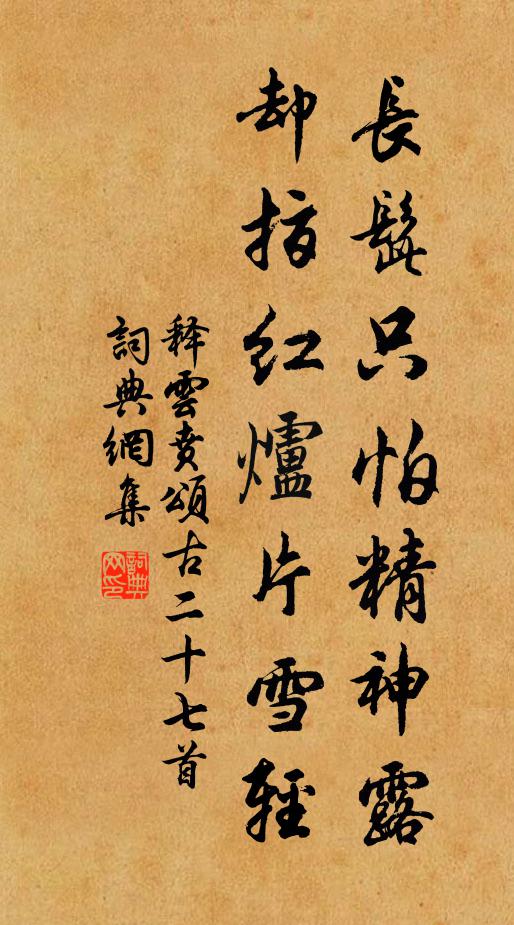 長髭只怕精神露
却指紅爐片雪輕
释雲賁頌古二十七首
詞典網集
詞典
网印